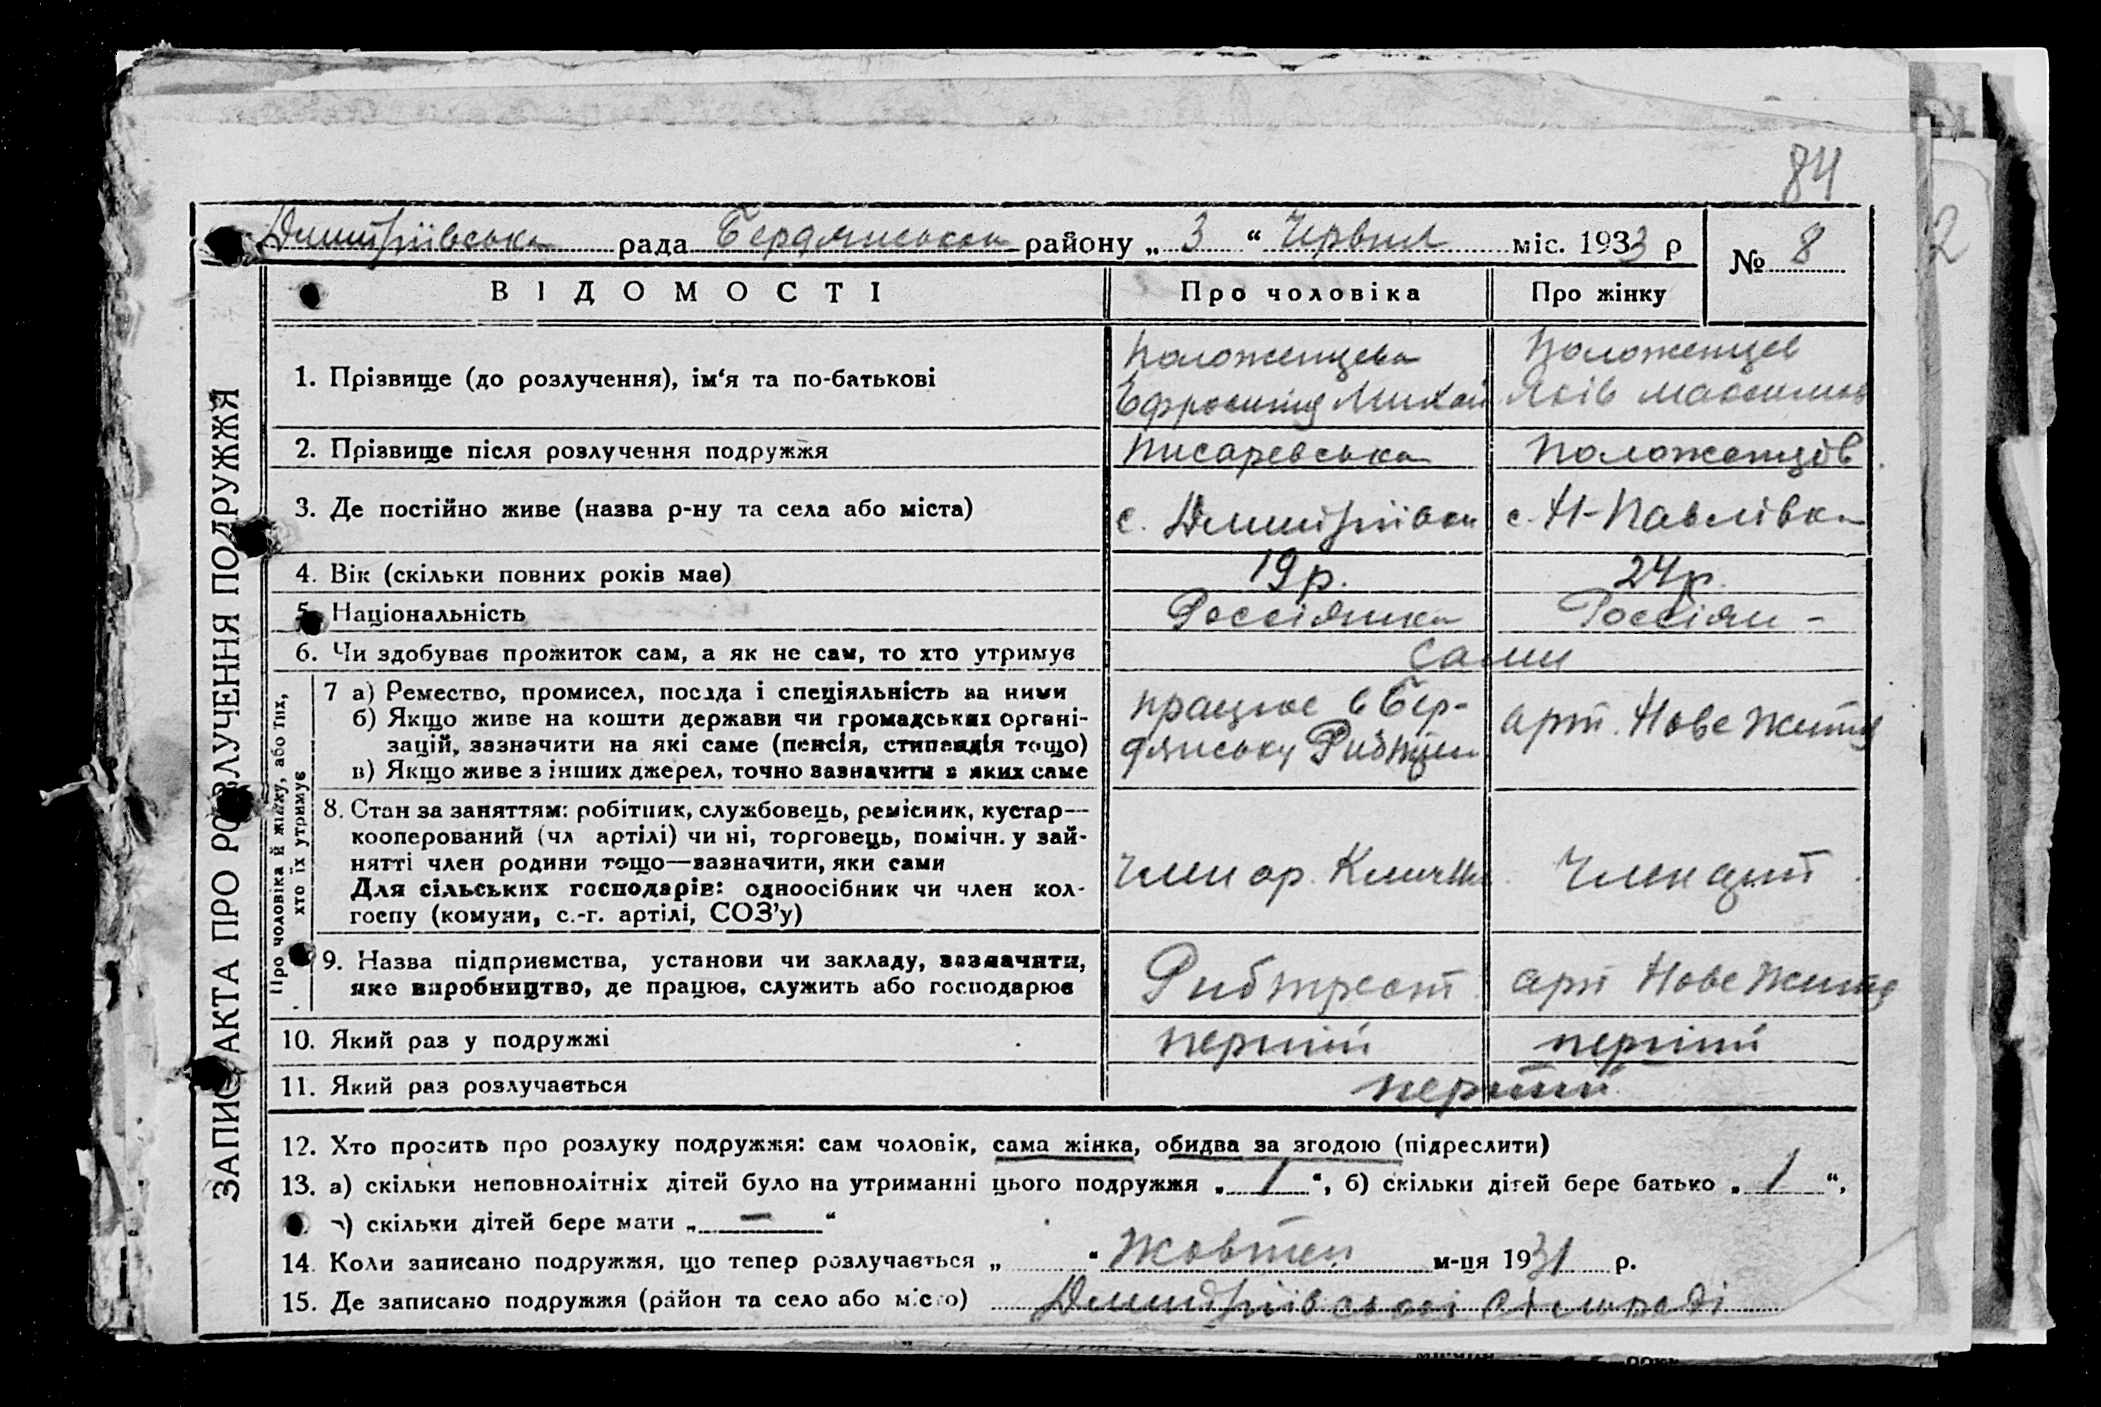 84
Дмитріївська рада Бердянського району „ 3 “ Червня міс. 1933 р
№ 8
2
ЗАПИС АКТА ПРО РОЗЛУЧЕННЯ ПОДРУЖЖЯ
ВІДОМОСТІ Про чоловіка Про жінку
1. Прізвище (до розлучення), ім‘я та по-батькові
Положенцева
Ефросинія Михай
Положенцев
Яків Максимов
2. Прізвище після розлучення подружжя Писаревська Положенцов
3. Де постійно живе (назва р-ну та села або міста) с. Дмитрівки с. Н-Павлівка
4. Вік (скільки повних років має) 19 р. 24 р.
5. Національність Россіянка Россіян -
6. Чи здобував прожиток сам, а як не сам, то хто утримує Сами
Про чоловіка й жінку, або тих,
хто їх утримує
7 а) Ремество, промисел, посада і спеціяльність за ними
б) Якщо живе на кошти держави чи громадських органі-
зацій, зазначити на які саме (пенсія, стипендія тощо)
в) Якщо живе з інших джерел, точно зазначити з яких саме
працює в Бер-
дянську
арт. Нове Життя
8. Стан за заняттям: робітник, службовець, ремісник, кустар—
кооперований (чл артілі) чи ні, торговець, помічн. у зай-
нятті член родини тощо—зазначити, яки сами
Для сільських господарів: одноосібник чи член кол-
госпу (комуни, с.-г. артілі, СОЗ’у)
член ар.
Член арт
9. Назва підприємства, установи чи закладу, зазначити,
яке виробництво, де працює, служить або господарює
Рибтрест
арт Нове Життя
10. Який раз у подружжі перший перший
11. Який раз розлучається перший
12. Хто просить про розлуку подружжя: сам чоловік, сама жінка, обидва за згодою (підреслити)
13. а) скільки неповнолітніх дітей було на утриманні цього подружжя „ 1 “, б) скільки дітей бере батько „ 1 “,
в) скільки дітей бере мати „ — “
14. Коли записано подружжя, що тепер розлучається „ “ Жовтен м-ця 1931 р.
15. Де записано подружжя (район та село або місто) Дмитріївській сільраді